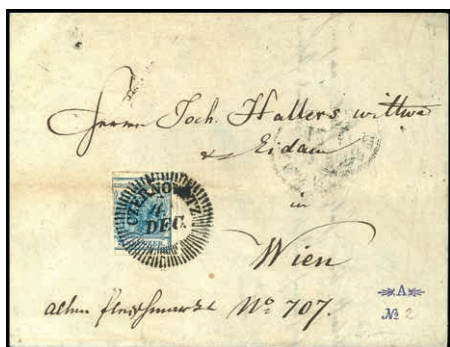 Herrn Joch. Hallers wittwe
& Eidam
in
CZERNOWITZ
4
DEC.
Wien
alten fleischmarkt Nº 707.
A
Nº 2